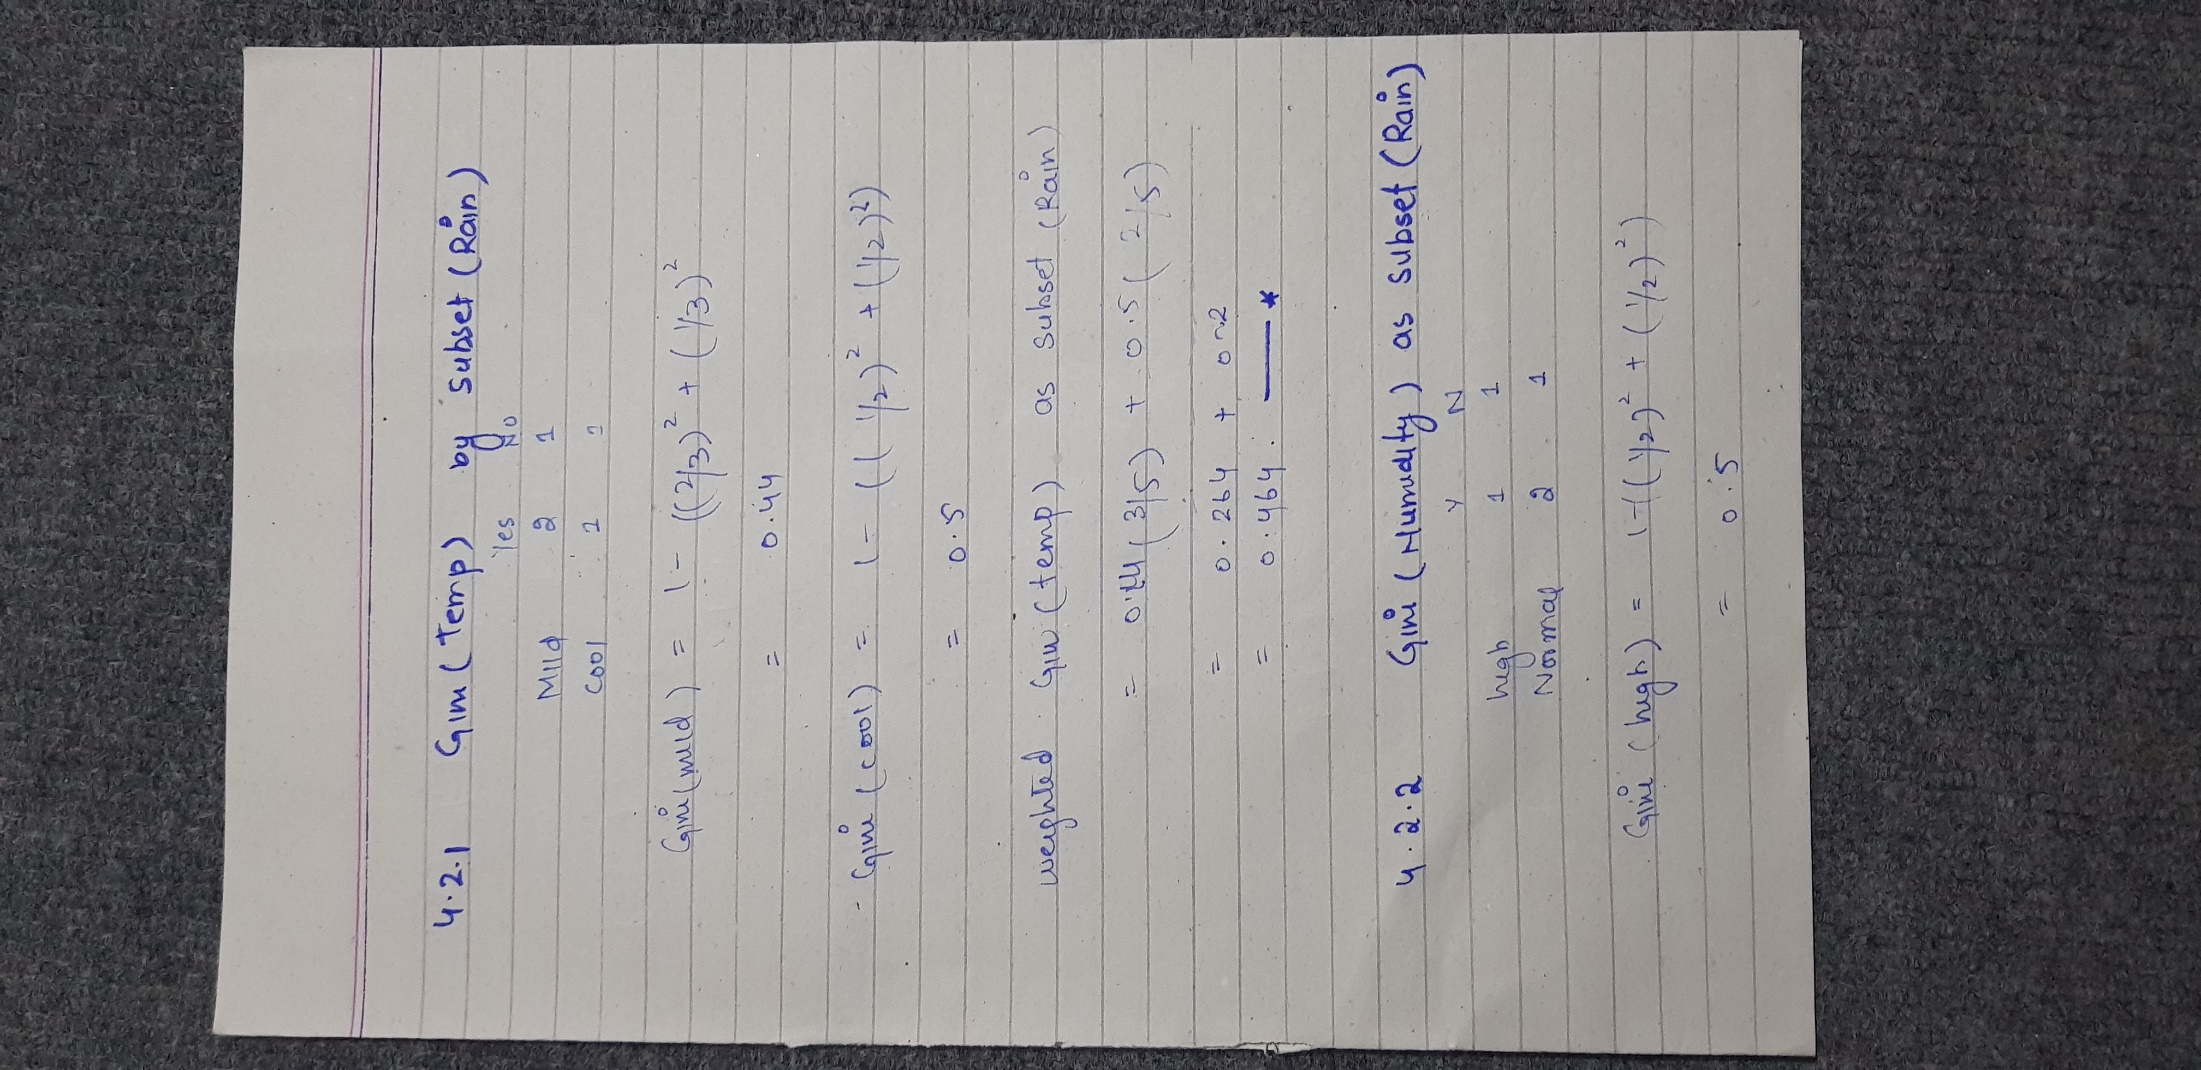 4.2.1 Gini (Temp) by subset (Rain)
Yes No
Mild 2 1
Cool 1 1
Gini (mild) = 1 - ((2/3)² + (1/3)²
= 0.44
Gini (cool) = 1 - ((1/2)² + (1/2)²)
= 0.5
weighted Gini (temp) as subset (Rain)
= 0.44 (3/5) + 0.5 (2/5)
= 0.264 + 0.2
= 0.464. —*
4.2.2 Gini (Humidity) as subset (Rain)
Y N
high 1 1
Normal 2 1
Gini (high) = 1-((1/2)² + (1/2)²)
= 0.5